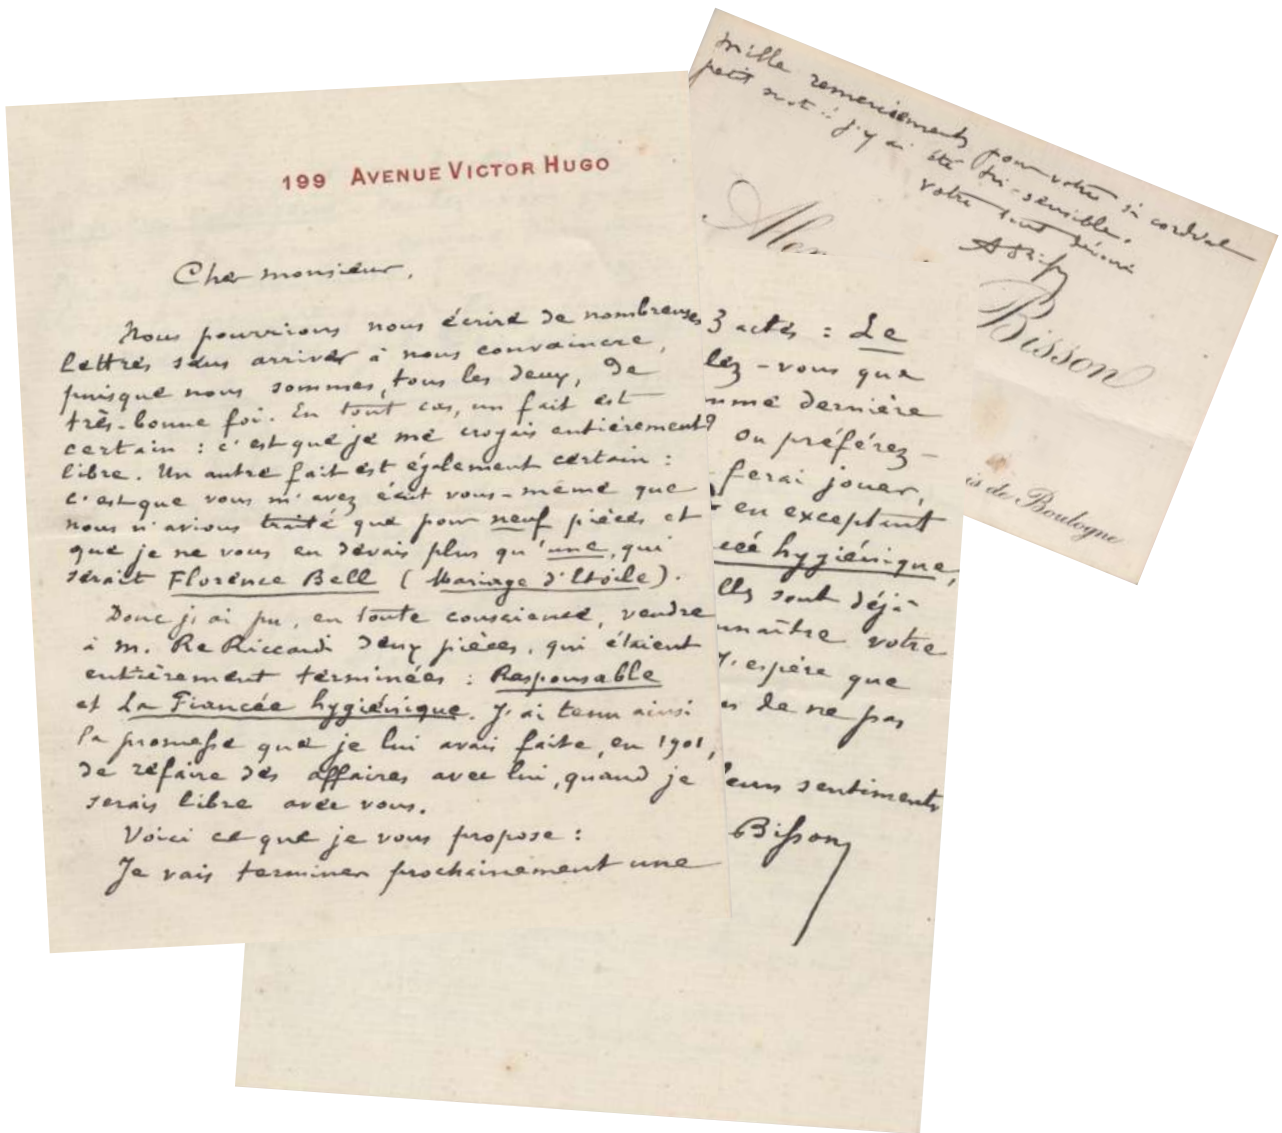 199 AVENUE VICTOR HUGO
Cher monsieur,
Nous pourrions nous écrire de nombreuses
lettres sans arriver à nous convaincre,
puisque nous sommes, tous les deux, de
très-bonne foi. En tout cas, un fait est
certain : c'est que je me croyais entièrement
libre. Un autre fait est également certain :
c'est que vous m'avez écrit vous-même que
nous n'avions traité que pour neuf pièces et
que je ne vous en devais plus qu'une, qui
serait Florence Bell (Mariage d'Etoile).
Donc j'ai pu, en toute conscience, vendre
à M. Re Riccardi deux pièces, qui étaient
entièrement terminées : Responsable
et La Fiancée hygiénique. J'ai tenu ainsi
la promesse que je lui avais faite, en 1901,
de refaire des affaires avec lui, quand je
serais libre avec vous.
Voici ce que je vous propose :
Je vais terminer prochainement une
3 actes : Le
lez-vous que
mme dernière
? Ou préférez-
ferai jouer,
en exceptant
cée hygiénique,
lles sont déjà
nnaître votre
J'espère que
de ne pas
leurs sentiments
Bisson
Mille remerciements pour votre si cordial
petit mot : j'y ai été très-sensible.
Votre tout dévoué
ABisson
Alex
Bisson
is de Boulogne